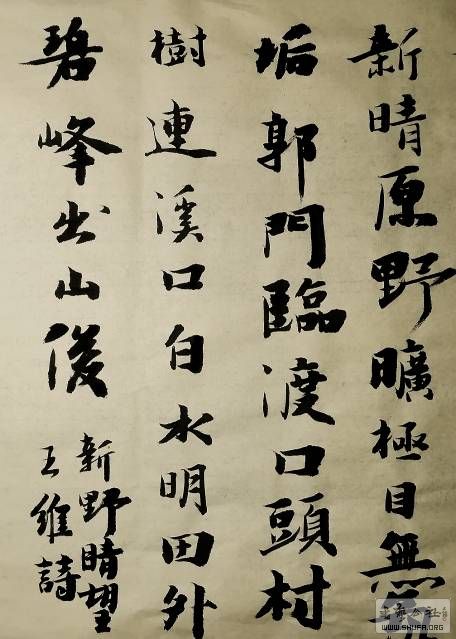 新晴原野曠極目無
垢郭門臨渡口頭村
樹連溪口白水明田外
碧峰出山後
新野晴望
王維詩
WWW.SHUFA.ORG